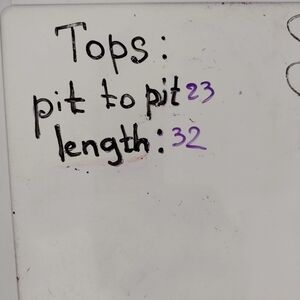 Tops:
pit to pit 23
length: 32